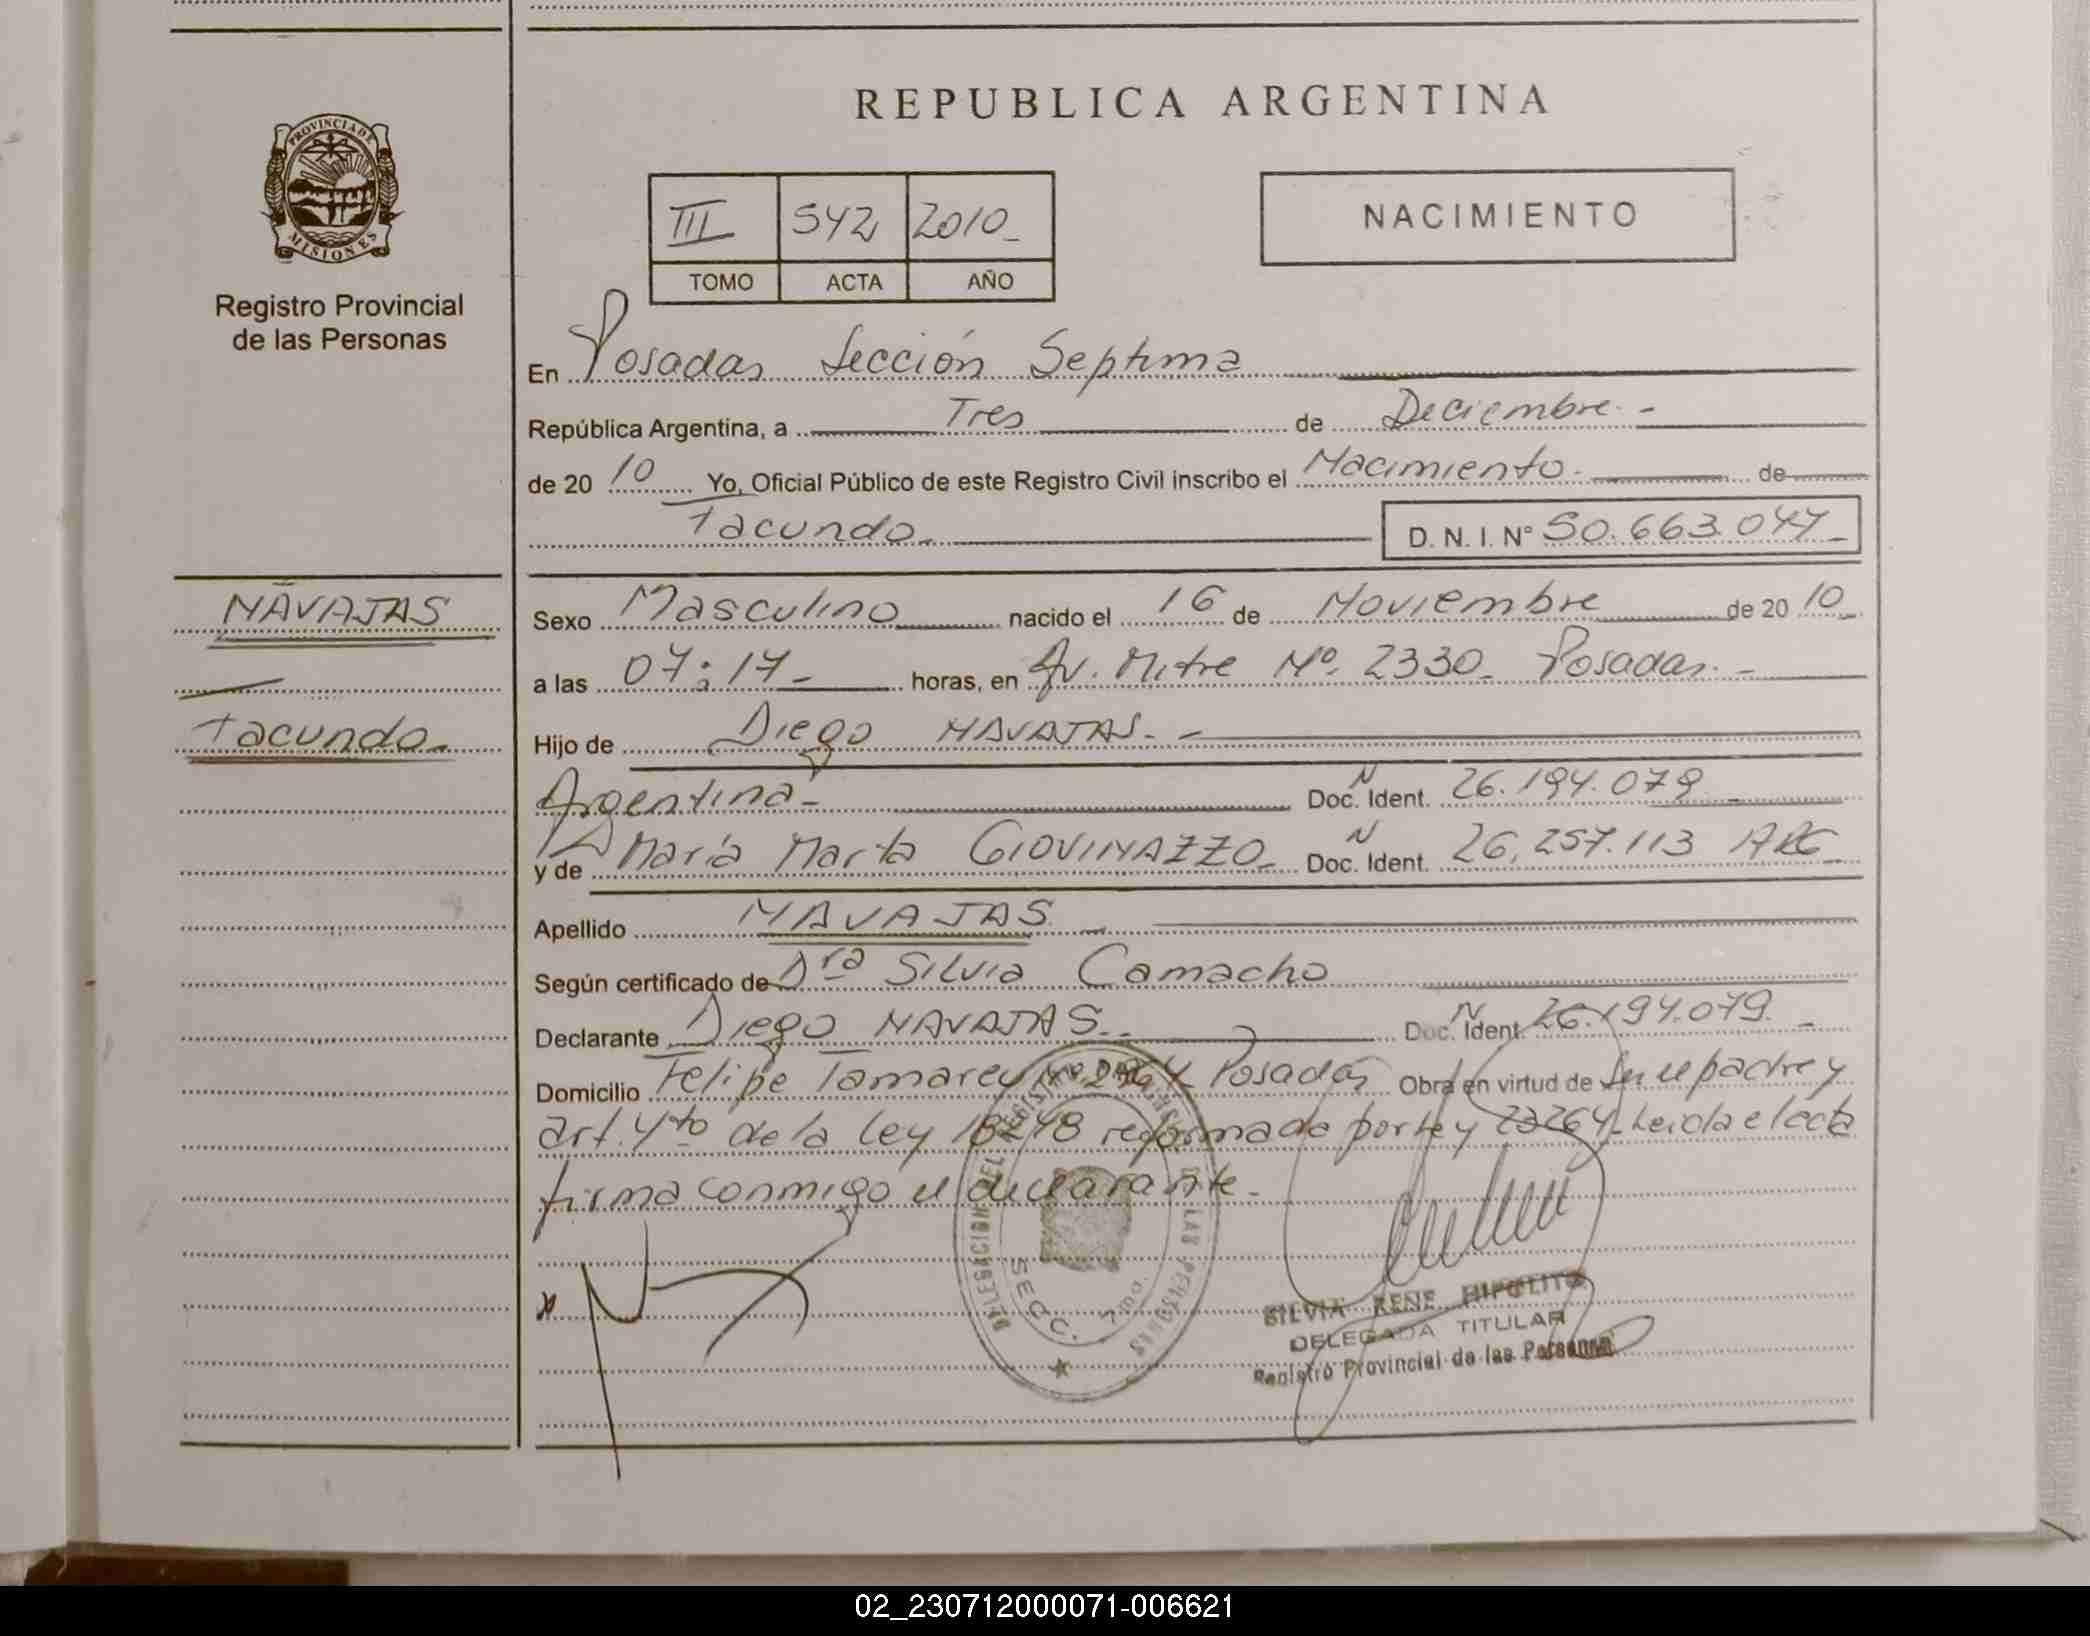 REPUBLICA ARGENTINA
PROVINCIA DE
MISIONES
Registro Provincial
de las Personas
III 542 2010
TOMO ACTA AÑO
NACIMIENTO
En Posadas Sección Septima
República Argentina, a Tres de Deciembre.-
de 20 10 Yo, Oficial Público de este Registro Civil inscribo el Nacimiento. de
Facundo. D. N. I. N° 50.663.047
NAVAJAS
Facundo
Sexo Masculino nacido el 16 de Noviembre de 20 10
a las 07:17 horas, en Av. Mitre Nº. 2330 Posadas.-
Hijo de Diego NAVAJAS.-
Argentina- Doc. N Ident. 26.194.079
y de María Marta GIOVINAZZO Doc. N Ident. 26.257.113 ARG
Apellido NAVAJAS
Según certificado de Dra Silvia Camacho
Declarante Diego NAVAJAS. Doc. N Ident. 26.194.079.
Domicilio Felipe Tamareu Posadas Obra en virtud de Ser el padre y
art. 4to de la Ley 18248 reformada por Ley Leida el acta
firma conmigo el declarante.
DELEGACION DEL REGISTRO LAS PERSONAS
SECC. 7ma.
SILVIA RENE HIPOLITO
DELEGADA TITULAR
Registro Provincial de las Personas
02_230712000071-006621